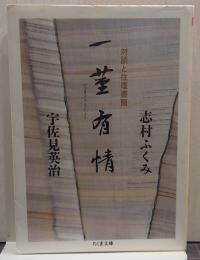 志村ふくみ
対談と往復書簡
一莖有情
宇佐見英治
ちくま文庫